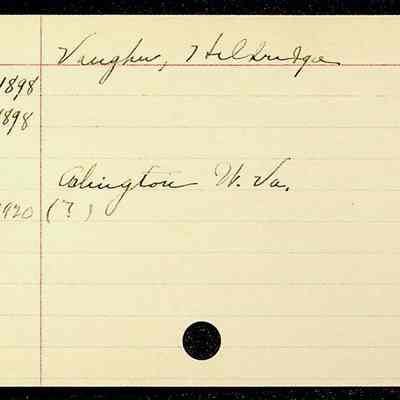 Vaughn, Hildridge
1898
1898
Abington W. Va.
1920 (?)